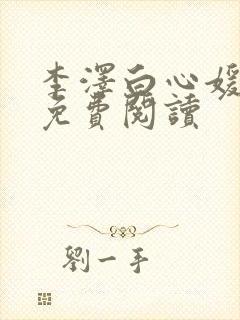 李澤白心媛
免費閱讀
劉一手